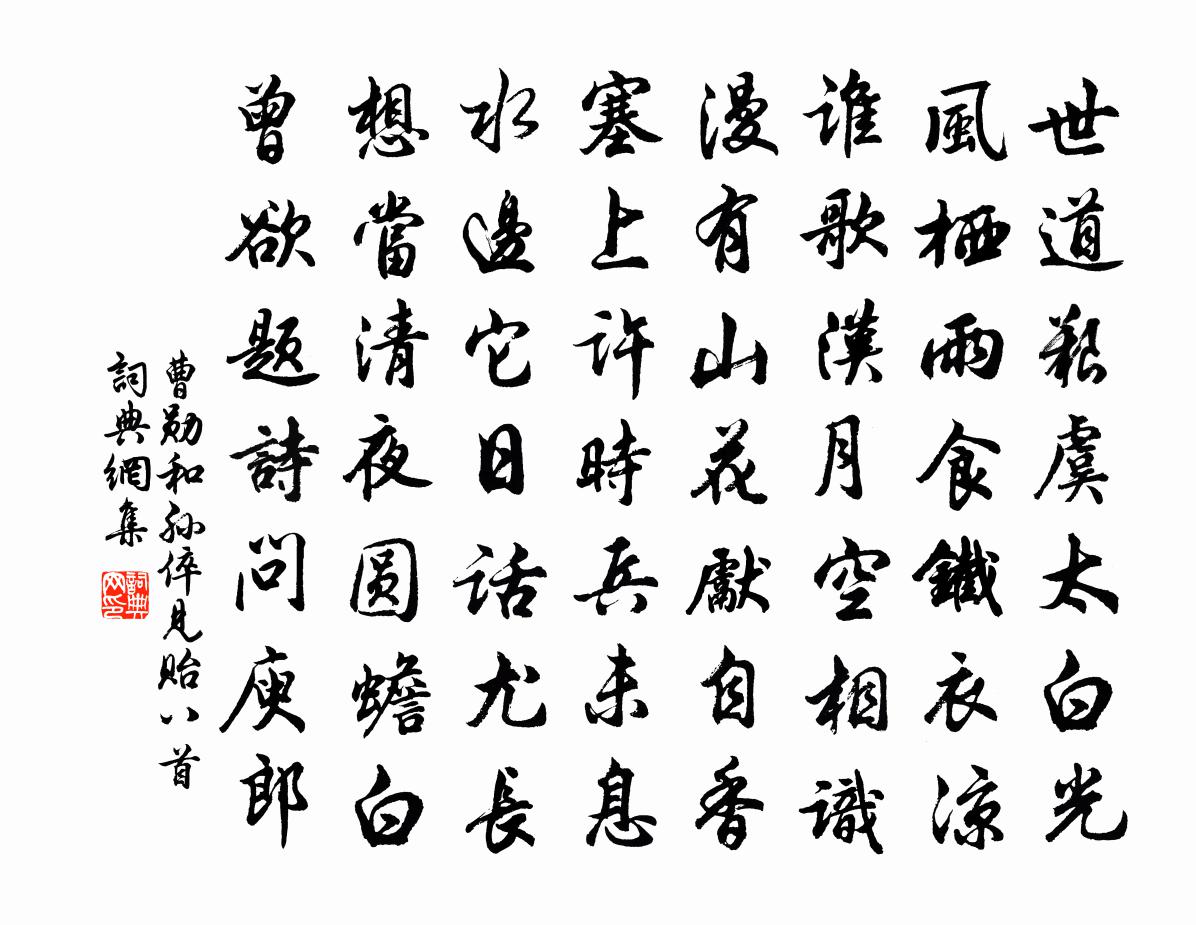 世道艱虞太白光
風栖雨食鐵衣涼
誰歌漢月空相識
漫有山花獻自香
塞上許時兵未息
水邊它日話尤長
想當清夜圓蟾白
曾欲題詩問庾郎
曹勛和孫倅見貽八首
詞典網集
詞典网印